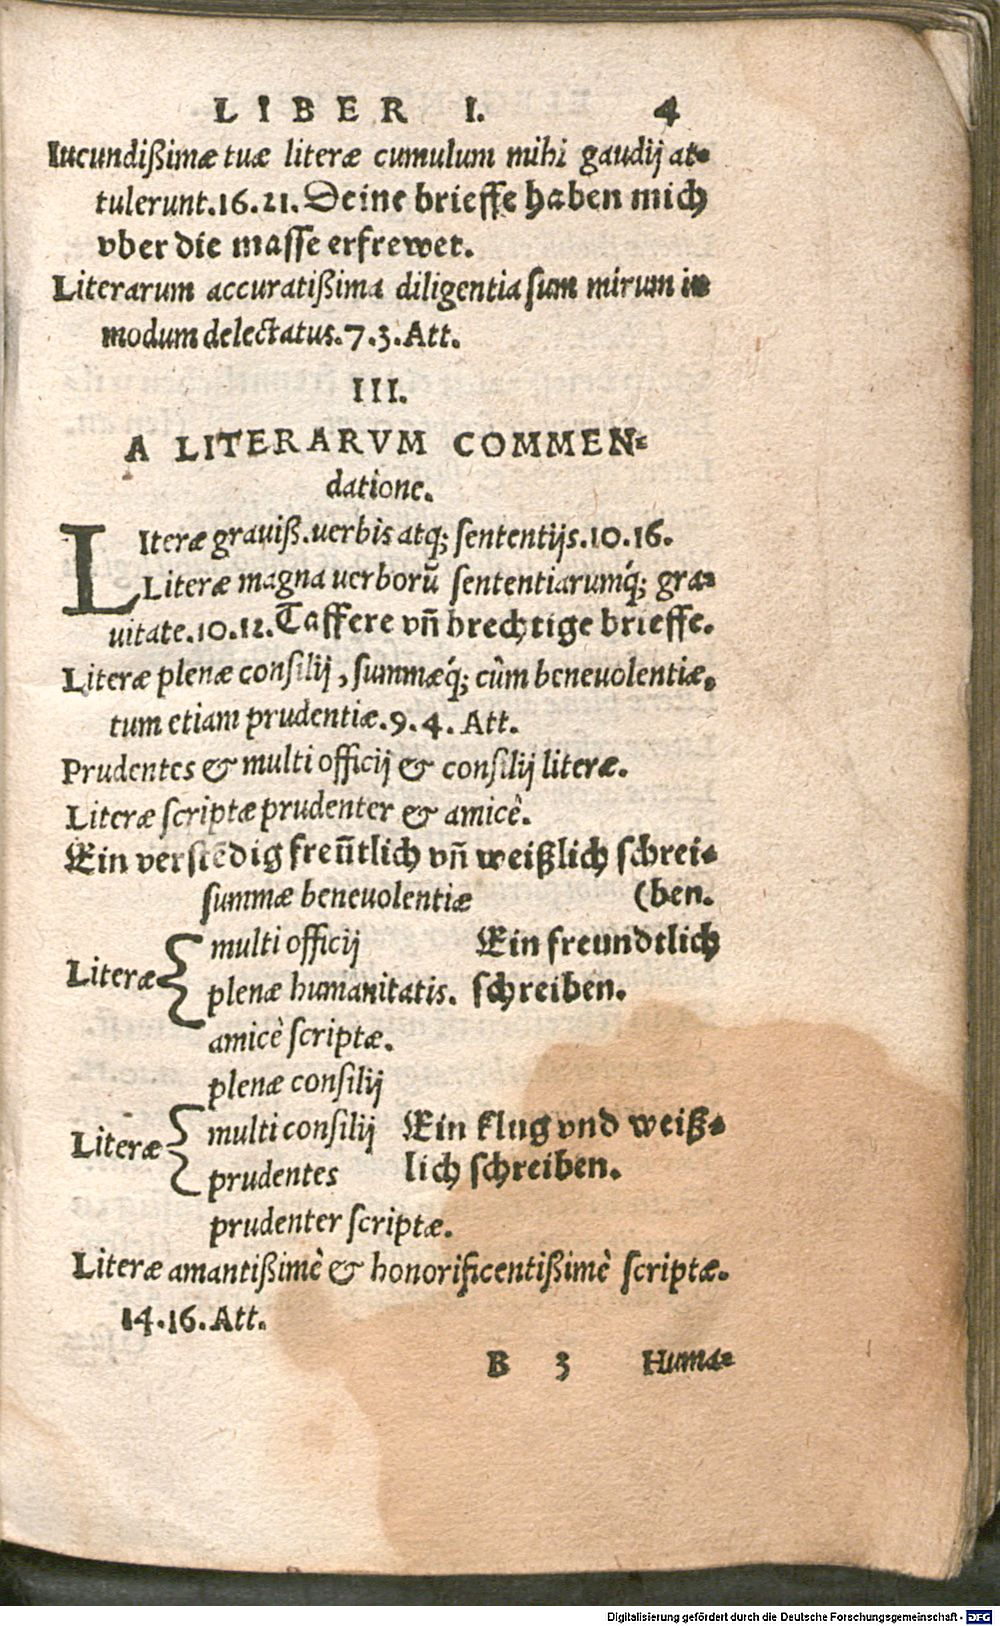 LIBER I. 4
Iucundißimæ tuæ literæ cumulum mihi gaudij at-
tulerunt.16.21. Deine brieffe haben mich
vber die masse erfrewet.
Literarum accuratißima diligentia sum mirum in
modum delectatus.7.3.Att.
III.
A LITERARVM COMMEN-
datione.
LIteræ grauiß.uerbis atq; sententijs.10.16.
Literæ magna uerborũ sententiarumq́; gra-
uitate.10.12. Taffere vñ brechtige brieffe.
Literæ plenæ consilij, summæq́; cùm beneuolentiæ,
tum etiam prudentiæ.9.4. Att.
Prudentes & multi officij & consilij literæ.
Literæ scriptæ prudenter & amicè.
Ein verstẽdig freũtlich vñ weißlich schrei-
summæ beneuolentiæ (ben.
multi officij Ein freundtlich
Literæ
plenæ humanitatis. schreiben.
amicè scriptæ.
plenæ consilij
multi consilij Ein klug vnd weiß-
Literæ
prudentes lich schreiben.
prudenter scriptæ.
Literæ amantißimè & honorificentißimè scriptæ.
14.16.Att.
B 3 Huma-
Digitalisierung gefördert durch die Deutsche Forschungsgemeinschaft - DFG